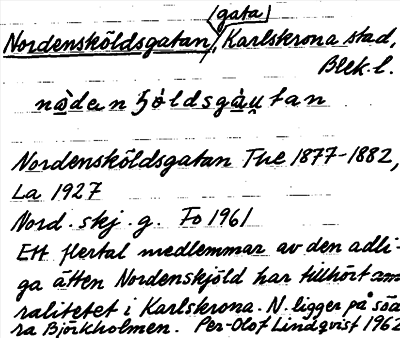 (gata)
Nordensköldsgatan, Karlskrona stad,
Blek. l.
Nordensköldsgatan The 1877-1882,
La 1927
Nord. skj. g. Fo 1961
Ett flertal medlemmar av den adli-
ga ätten Nordenskjöld har tillhört am
ralitetet i Karlskrona. N. ligger på söd
ra Björkholmen. Per-Olof Lindqvist 1962